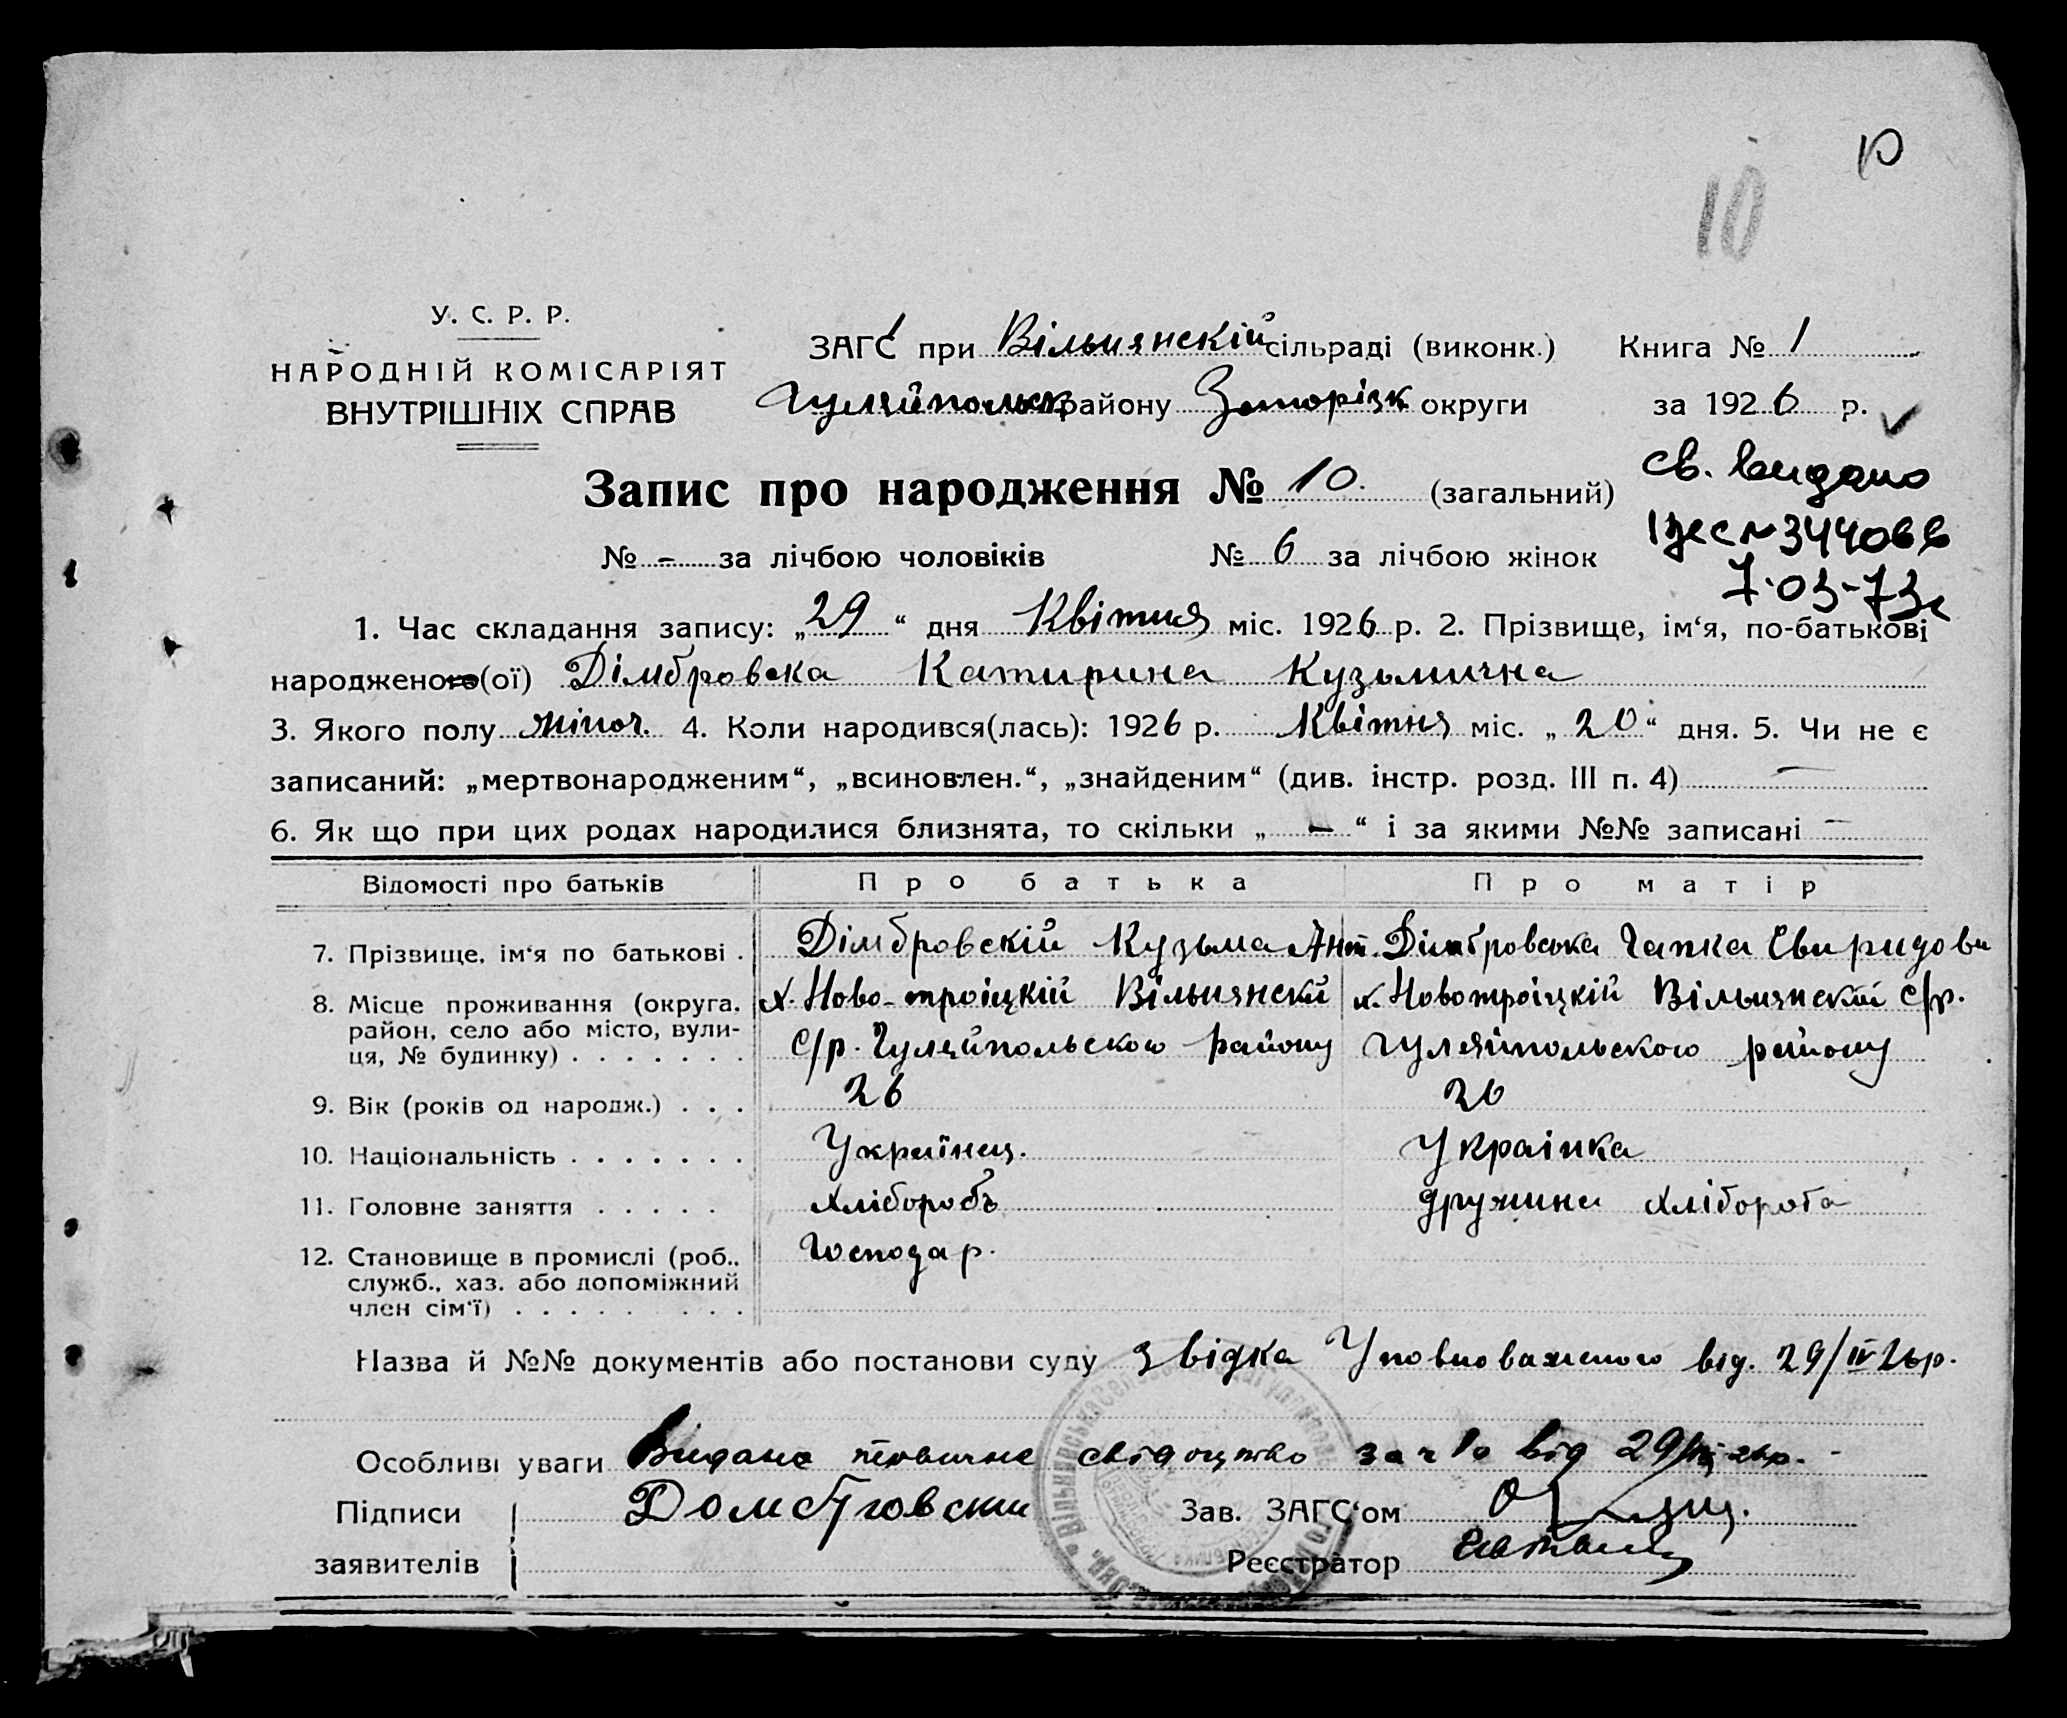 10
10
У. С. Р. Р.
НАРОДНІЙ КОМІСАРІЯТ
ВНУТРІШНІХ СПРАВ
ЗАГС при Вільнянскій сільраді (виконк.) Книга № 1
Гуляйпольск району Запорізк округи за 1926 р.
Запис про народження № 10. (загальний)
св. видано
344066
7.03-73г
№ - за лічбою чоловіків № 6 за лічбою жінок
1. Час складання запису: „29“ дня Квітня міс. 1926 р. 2. Прізвище, ім‘я, по-батькові
народженого(ої) Дімбровска Катирина Кузьмична
3. Якого полу жіноч. 4. Коли народився(лась): 1926 р. Квітня міс. „20“ дня. 5. Чи не є
записаний: „мертвонародженим“, „всиновлен.“, „знайденим“ (див. інстр. розд. III п. 4) —
6. Як що при цих родах народилися близнята, то скільки „ - “ і за якими №№ записані —
Відомості про батьків Про батька Про матір
7. Прізвище, ім‘я по батькові . Дімбровскій Кузьма Ант. Дімбровська Ганка Свиридови
8. Місце проживання (округа, х. Ново-троіцкій Вільнянскій х. Новотроіцкій Вільнянскій с/р.
район, село або місто, вули-
ця, № будинку) . . . . . . . с/р. Гуляйпольского району Гуляйпольского району
9. Вік (років од народж.) . . . 26 26
10. Національність . . . . . . . Українец. Украінка
11. Головне заняття . . . . . хліборобъ дружина хлібороба
12. Становище в промислі (роб., Господар.
служб., хаз. або допоміжний
член сім‘ї) . . . . . . . .
Назва й №№ документів або постанови суду звідка Уповноваженого від. 29/IV 26р.
Особливі уваги Видано свідоцтво за ч 10 від 29/IV 26р.
Підписи Домбровски Зав. ЗАГС‘ом
заявителів Реєстратор